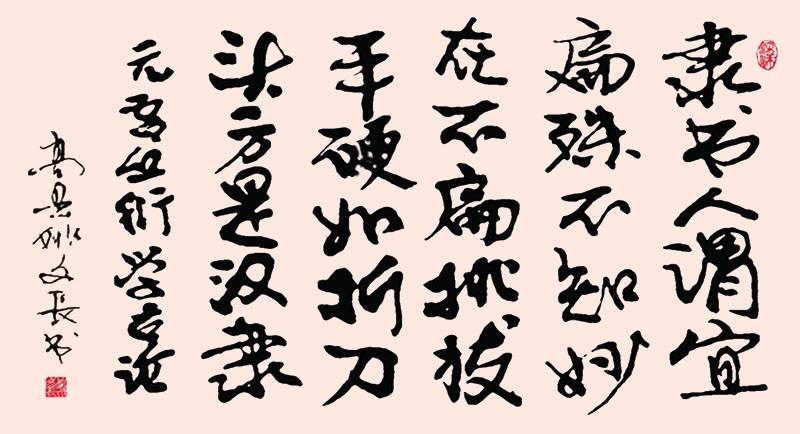 隶书人谓宜
扁殊不知妙
在不扁挑拔
平硬如折刀
头方是汉隶
元吾丘衍学古论
高姚文長书